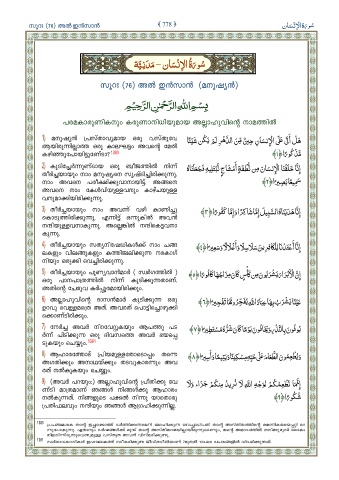 സൂറഃ (76) അൽ ഇൻസാൻ
778
سُورَةُ الْإِنْسَان
سُورَةُ الْإِنْسَان - مَدَنِيَّة
സൂറഃ (76) അൽ ഇൻസാൻ (മനുഷ്യൻ)
بِسْمِ اللَّهِ الرَّحْمَٰنِ الرَّحِيمِ
പരമകാരുണികനും കരുണാനിധിയുമായ അല്ലാഹുവിന്റെ നാമത്തിൽ
1) മനുഷ്യൻ പ്രസ്താവ്യമായ ഒരു വസ്തുവേ
ആയിരുന്നില്ലാത്ത ഒരു കാലഘട്ടം അവന്റെ മേൽ
കഴിഞ്ഞുപോയില്ലേ?
هَلْ أَتَىٰ عَلَى الْإِنْسَانِ حِينٌ مِنَ الدَّهْرِ لَمْ يَكُنْ شَيْئًا
مَذْكُورًا ﴿١﴾
2) കൂടിച്ചേർന്നുണ്ടായ ഒരു ബീജത്തിൽ നിന്ന്
തീർച്ചയായും നാം മനുഷ്യനെ സൃഷ്ടിച്ചിരിക്കുന്നു.
നാം അവനെ പരീക്ഷിക്കുവാനായിട്ട്. അങ്ങനെ
അവനെ നാം കേൾവിയുള്ളവനും കാഴ്ചയുള്ള
വനുമാക്കിയിരിക്കുന്നു.
إِنَّا خَلَقْنَا الْإِنْسَانَ مِنْ نُطْفَةٍ أَمْشَاجٍ نَبْتَلِيهِ فَجَعَلْنَاهُ
سَمِيعًا بَصِيرًا ﴿٢﴾
3) തീർച്ചയായും നാം അവന്ന് വഴി കാണിച്ചു
കൊടുത്തിരിക്കുന്നു. എന്നിട്ട് ഒന്നുകിൽ അവൻ
നന്ദിയുള്ളവനാകുന്നു. അല്ലെങ്കിൽ നന്ദികെട്ടവനാ
കുന്നു.
إِنَّا هَدَيْنَاهُ السَّبِيلَ إِمَّا شَاكِرًا وَإِمَّا كَفُورًا ﴿٣﴾
4) തീർച്ചയായും സത്യനിഷേധികൾക്ക് നാം ചങ്ങ
ലകളും വിലങ്ങുകളും കത്തിജ്വലിക്കുന്ന നരകാഗ്
നിയും ഒരുക്കി വെച്ചിരിക്കുന്നു.
إِنَّا أَعْتَدْنَا لِلْكَافِرِينَ سَلَاسِلَ وَأَغْلَالًا وَسَعِيرًا ﴿٤﴾
5) തീർച്ചയായും പുണ്യവാൻമാർ ( സ്വർഗത്തിൽ )
ഒരു പാനപാത്രത്തിൽ നിന്ന് കുടിക്കുന്നതാണ്.
അതിന്റെ ചേരുവ കർപ്പൂരമായിരിക്കും.
إِنَّ الْأَبْرَارَ يَشْرَبُونَ مِنْ كَأْسٍ كَانَ مِزَاجُهَا كَافُورًا ﴿٥﴾
6) അല്ലാഹുവിന്റെ ദാസൻമാർ കുടിക്കുന്ന ഒരു
ഉറവു വെള്ളമത്രെ അത്. അവരത് പൊട്ടിച്ചൊഴുക്കി
ക്കൊണ്ടിരിക്കും.
عَيْنًا يَشْرَبُ بِهَا عِبَادُ اللَّهِ يُفَجِّرُونَهَا تَفْجِيرًا ﴿٦﴾
7) നേർച്ച അവർ നിറവേറ്റുകയും ആപത്തു പട
ർന്ന് പിടിക്കുന്ന ഒരു ദിവസത്തെ അവർ ഭയപ്പെ
ടുകയും ചെയ്യും.
يُوفُونَ بِالنَّذْرِ وَيَخَافُونَ يَوْمًا كَانَ شَرُّهُ مُسْتَطِيرًا ﴿٧﴾
8) ആഹാരത്തോട് പ്രിയമുള്ളതോടൊപ്പം തന്നെ
അഗതിക്കും അനാഥയ്ക്കും തടവുകാരന്നും അവ
രത് നൽകുകയും ചെയ്യും.
وَيُطْعِمُونَ الطَّعَامَ عَلَىٰ حُبِّهِ مِسْكِينًا وَيَتِيمًا وَأَسِيرًا ﴿٨﴾
9) (അവർ പറയും:) അല്ലാഹുവിന്റെ പ്രീതിക്കു വേ
ണ്ടി മാത്രമാണ് ഞങ്ങൾ നിങ്ങൾക്കു ആഹാരം
നൽകുന്നത്. നിങ്ങളുടെ പക്കൽ നിന്നു യാതൊരു
പ്രതിഫലവും നന്ദിയും ഞങ്ങൾ ആഗ്രഹിക്കുന്നില്ല.
إِنَّمَا نُطْعِمُكُمْ لِوَجْهِ اللَّهِ لَا نُرِيدُ مِنْكُمْ جَزَاءً وَلَا
شُكُورًا ﴿٩﴾